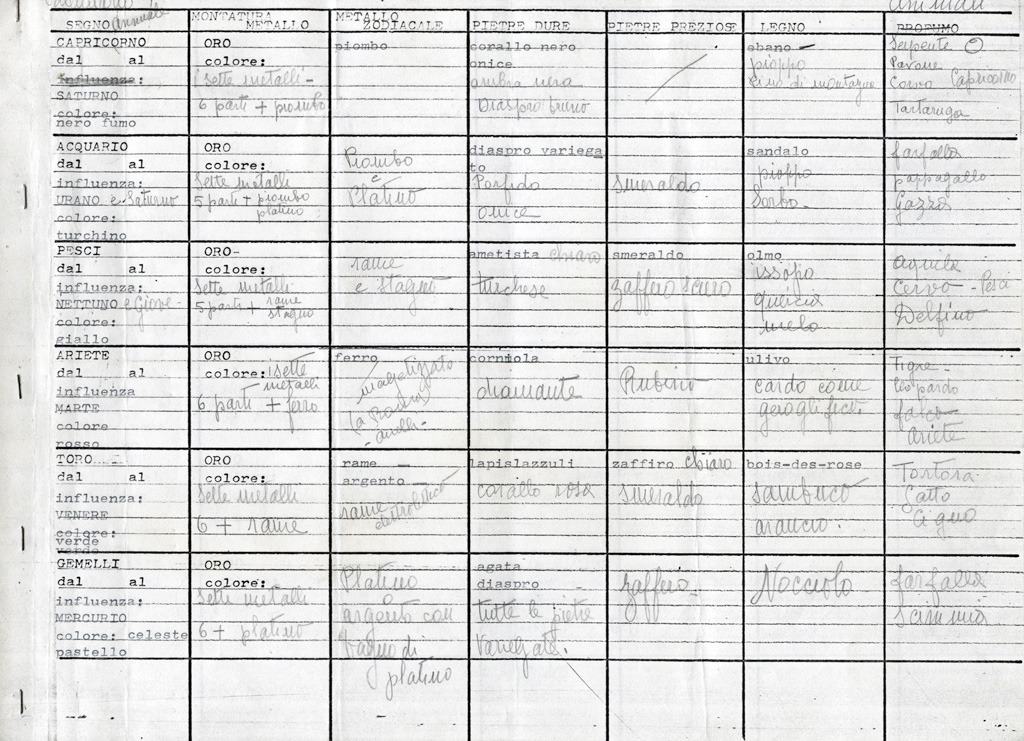 Animali
SEGNO Annuale MONTATURA METALLO METALLO ZODIACALE PIETRE DURE PIETRE PREZIOSE LEGNO PROFUMO
CAPRICORNO ORO piombo corallo nero ebano - Serpente
dal al colore: onice pioppo Pavone
influenza: sette metalli - ombra nera pino di montagna Corvo Capricorno
SATURNO 6 parti + piombo Diaspro bruno Tartaruga
colore:
nero fumo
ACQUARIO ORO Piombo diaspro variega sandalo farfalla
dal al colore: e to pioppo pappagallo
influenza: Sette metalli Platino Porfido smeraldo Sorbo. Gazza
URANO e Saturno 5 parti + piombo platino onice
colore:
turchino
PESCI ORO- rame ametista chiaro smeraldo olmo aquila
dal al colore: e stagno turchese zaffiro scuro issopo Cervo - Pesci
influenza: Sette metalli quercia Delfino
NETTUNO e Giove - 5 parti + rame stagno melo
colore:
giallo
ARIETE ORO ferro corniola ulivo Tigre
dal al colore: sette metalli magnetizzato diamante Rubino cardo come leopardo
influenza 6 parti + ferro anelli geroglifici falco
MARTE ariete
colore
rosso
TORO ORO rame - lapislazzuli zaffiro chiaro bois-des-rose Tortora
dal al colore: argento corallo rosa smeraldo sambuco Gatto
influenza: Sette metalli rame elettrolitico arancio. Cigno
VENERE 6 + rame
colore:
verde
verde
GEMELLI ORO Platino agata zaffiro Nocciolo farfalla
dal al colore: o diaspro scimmia
influenza: Sette metalli argento con tutte le pietre
MERCURIO 6 + platino bagno di Variegate.
colore: celeste platino
pastello